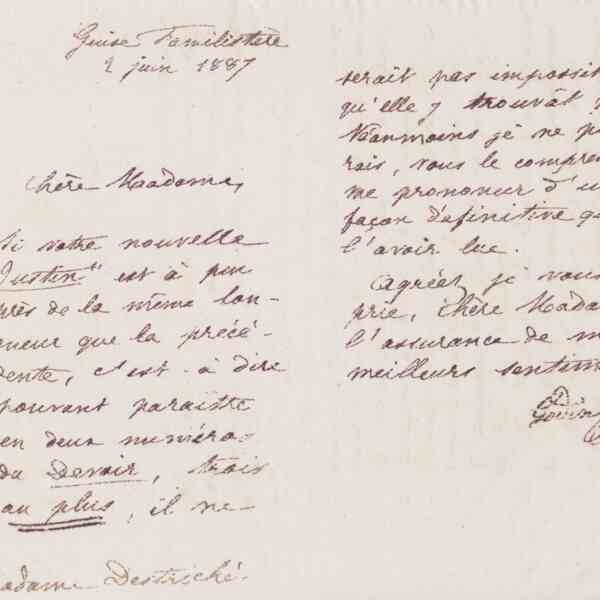 Guise Familistère
2 juin 1887
Chère Madame,
Si votre nouvelle
"Justin" est à peu
près de la même lon-
gueur que la précé-
dente, c'est-à-dire
pouvant paraître
en deux numéros
du Devoir, trois
au plus, il ne
Madame Destriché.
serait pas impossib
qu'elle y trouvât p
Néanmoins je ne p
rais, vous le compren
me prononcer d'u
façon définitive qu
l'avoir lue.
Agréez, je vous
prie, chère Mada
l'assurance de m
meilleurs sentim
Godin